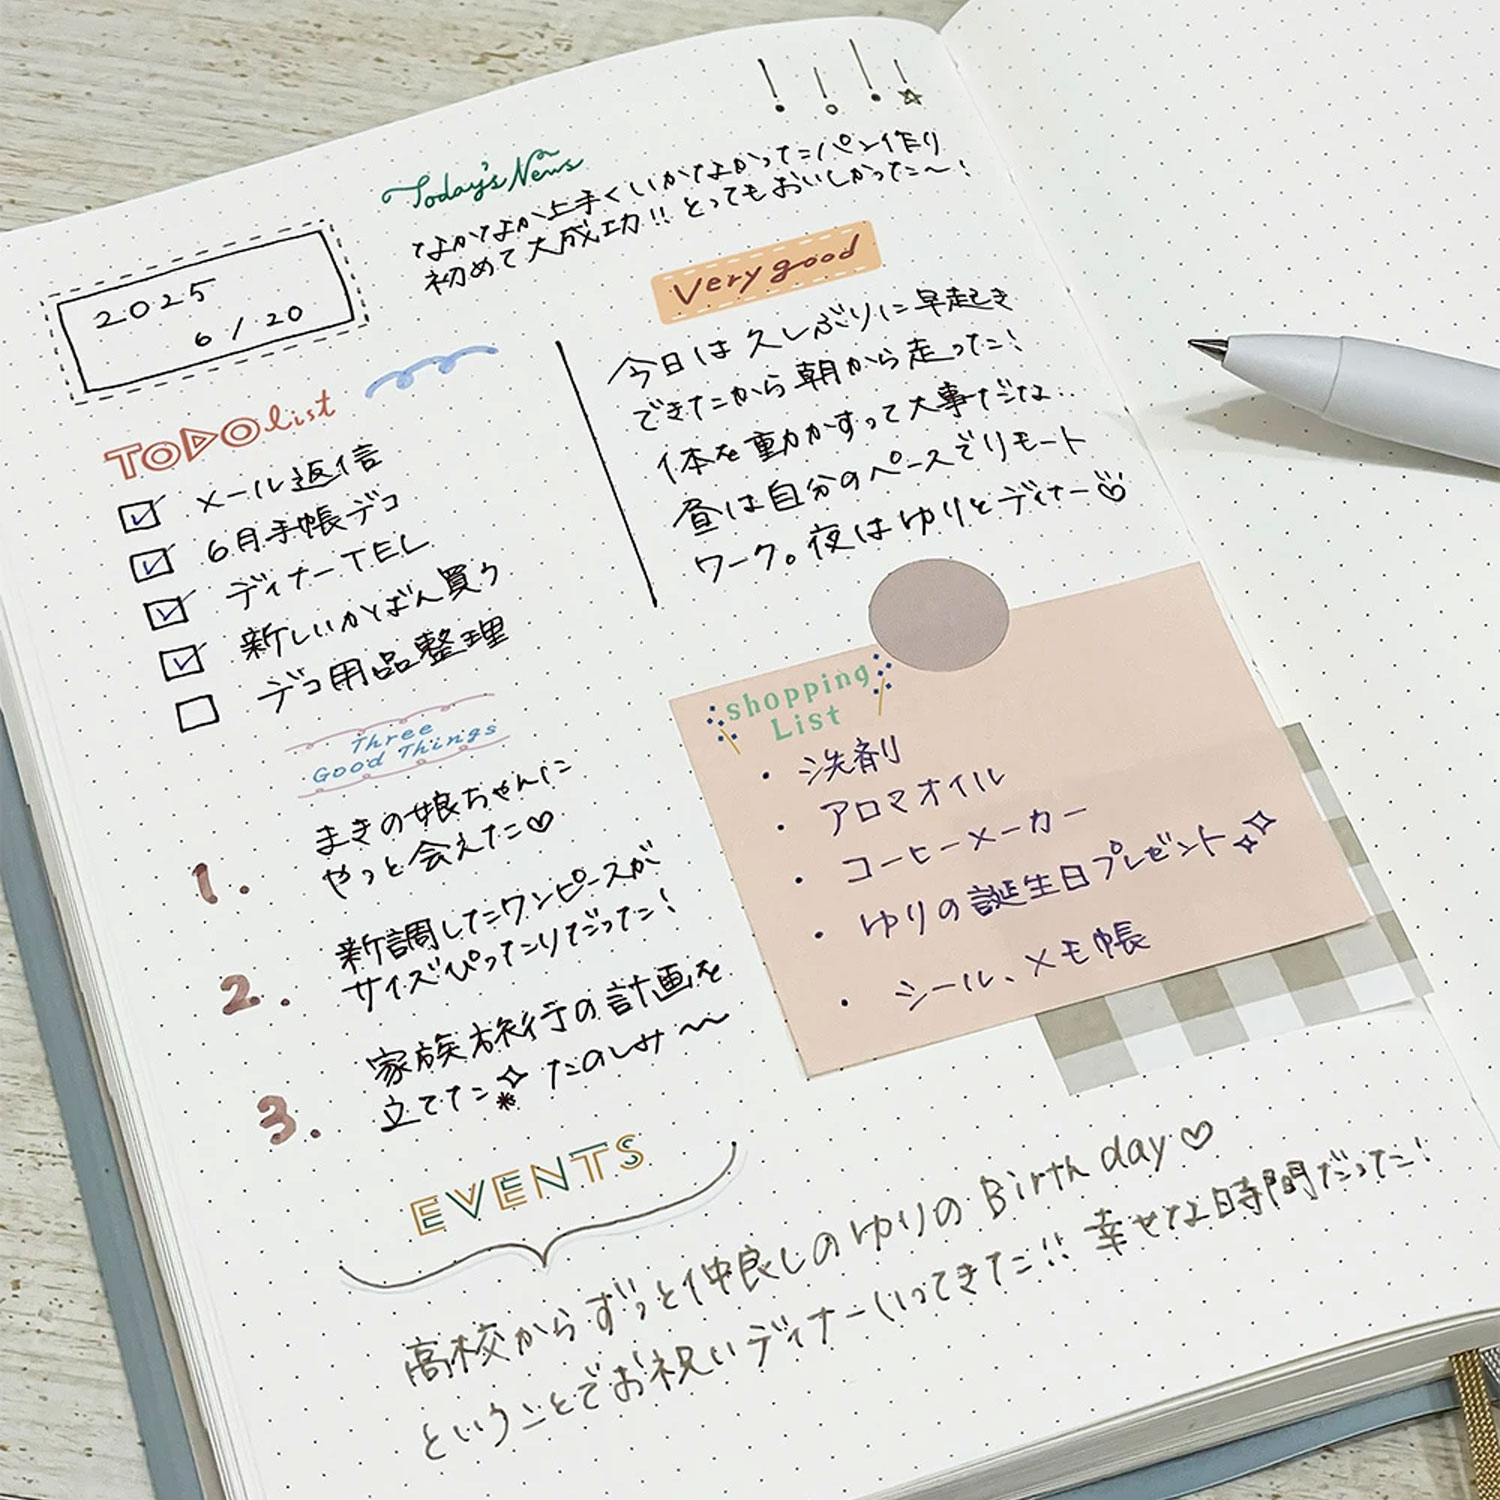 2025
6/20
Today's News
なかなか上手くいかなかったパン作り
初めて大成功!! とってもおいしかった〜!
Very good
今日は久しぶりに早起き
できたから朝から走った!
体を動かすって大事だな..
昼は自分のペースでリモート
ワーク。夜はゆりとディナー♡
TODO list
メール返信
6月手帳デコ
ディナーTEL
新しいかばん買う
デコ用品整理
Three
Good Things
1.
まきの娘ちゃんに
やっと会えた♡
2.
新調したワンピースが
サイズぴったりだった!
3.
家族旅行の計画を
立てた たのしみ〜〜
shopping
List
・洗剤
・アロマオイル
・コーヒーメーカー
・ゆりの誕生日プレゼント
・シール、メモ帳
EVENTS
高校からずっと仲良しのゆりの Birth day♡
ということでお祝いディナーいってきた!! 幸せな時間だった!